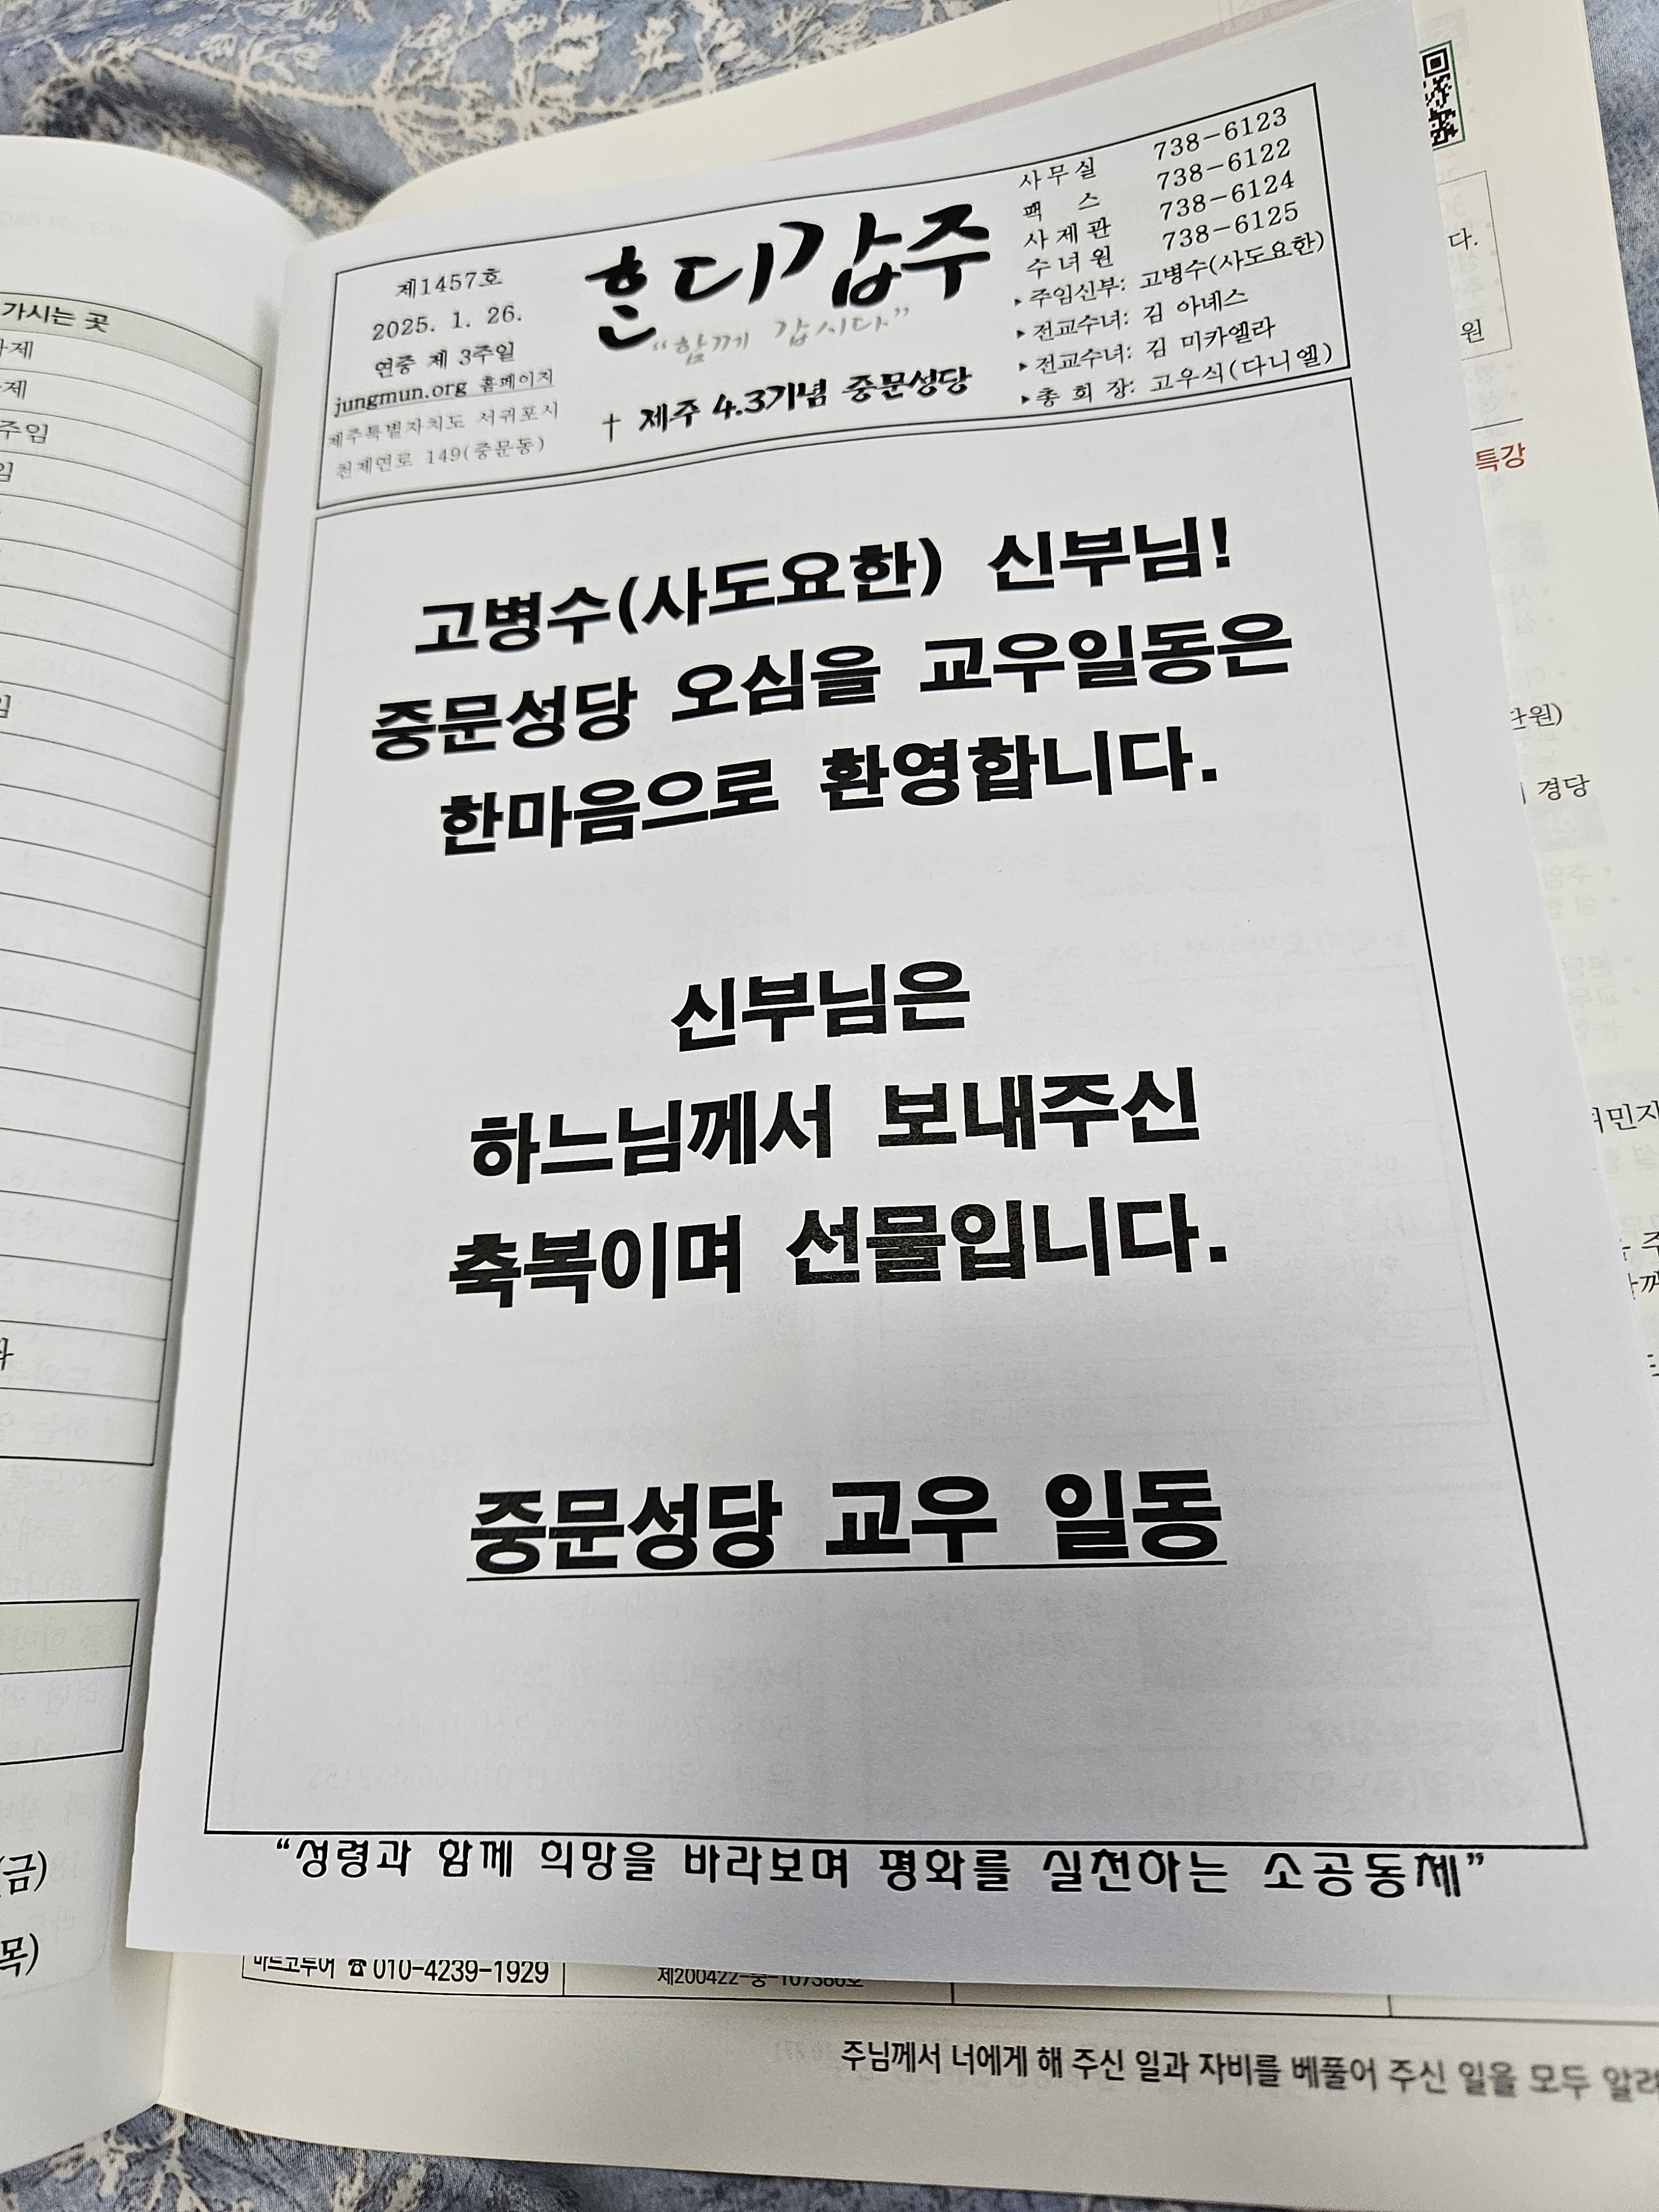 제1457호
2025. 1. 26.
연중 제 3주일
jungmun.org 홈페이지
제주특별자치도 서귀포시
천제연로 149(중문동)
혼디갑주
“함께 갑시다”
† 제주 4.3기념 중문성당
사무실 738-6123
팩 스 738-6122
사제관 738-6124
수녀원 738-6125
▸주임신부: 고병수(사도요한)
▸전교수녀: 김 아녜스
▸전교수녀: 김 미카엘라
▸총 회 장: 고우식(다니엘)
고병수(사도요한) 신부님!
중문성당 오심을 교우일동은
한마음으로 환영합니다.
신부님은
하느님께서 보내주신
축복이며 선물입니다.
중문성당 교우 일동
“성령과 함께 희망을 바라보며 평화를 실천하는 소공동체”
가시는 곳
주임
(금)
목)
다.
원
특강
단원)
경당
마르코투어 ☎010-4239-1929
주님께서 너에게 해 주신 일과 자비를 베풀어 주신 일을 모두 알려